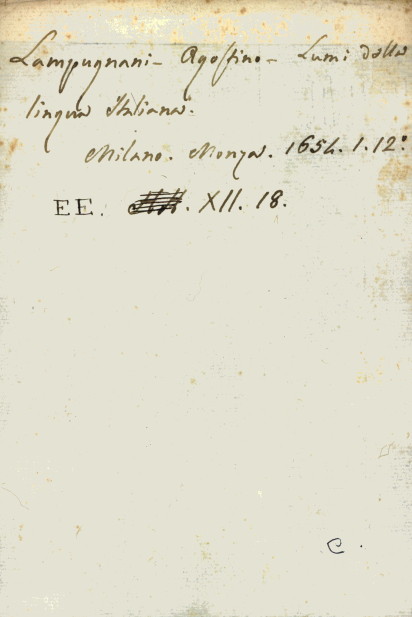 Lampugnani - Agostino - Lumi della
lingua Italiana.
Milano. Monza. 1654. 1. 12°.
EE. . XII. 18.
C.